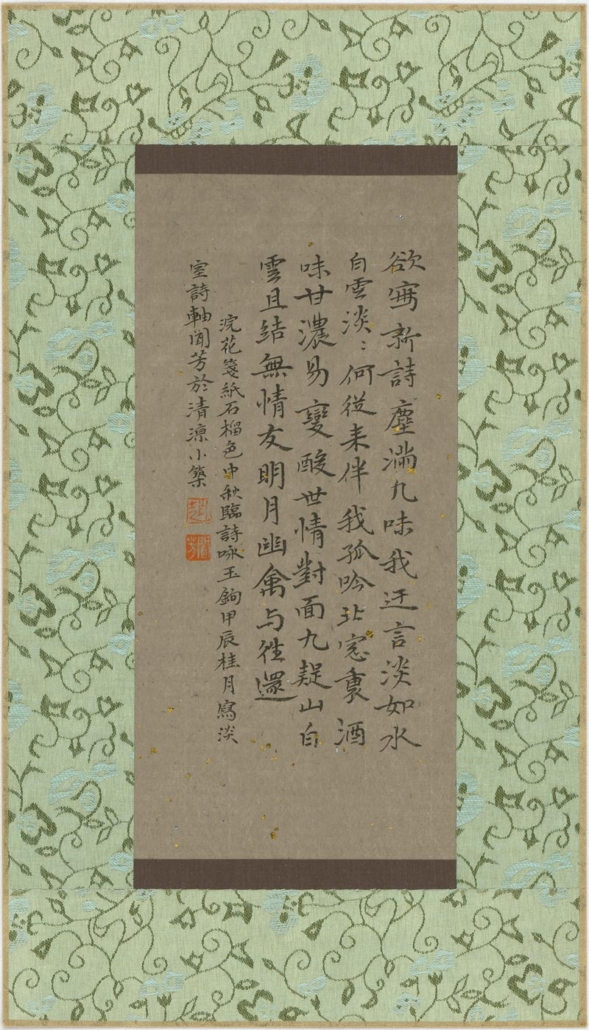 欲寫新詩塵滿几味我迂言淡如水
白雲淡〻何從来伴我孤吟北窓裏酒
味甘濃易變酸世情對面九疑山白
雲且结無情友明月幽禽与往還
浣花箋紙石榴色中秋臨詩咏玉鉤甲辰桂月寫淡
室詩軸聞芳於清涼小築